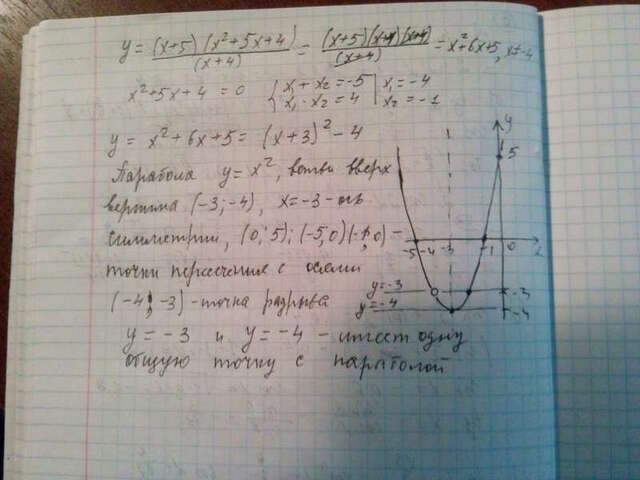 y = (x+5)(x²+5x+4)/(x+4) = (x+5)(x+1)(x+4)/(x+4) = x²+6x+5, x≠-4
x²+5x+4=0 { x₁+x₂=-5 x₁·x₂=4 | x₁=-4 x₂=-1
y = x²+6x+5 = (x+3)²-4
Парабола y=x², ветви вверх
вершина (-3;-4), x=-3-ось
симметрии, (0;5); (-5;0) (-1;0) -
точки пересечения с осями
(-4; -3) - точка разрыва
y=-3 и y=-4 - имеет одну
общую точку с параболой
y
5
-5 -4 -3 -1 0
y=-3 -3
y=-4 -4